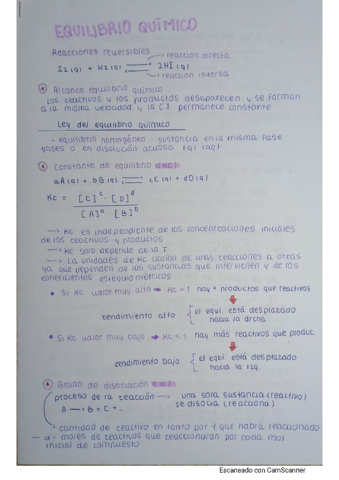 EQUILIBRIO QUÍMICO
Reacciones reversibles
→ reacción directa
I2 (g) + H2 (g) ⇄ 2HI (g)
→ reacción inversa
Alcance equilibrio químico
Los reactivos y los productos desaparecen y se forman
a la misma velocidad y la [ ] permanece constante
Ley del equilibrio químico
- equilibrio homogéneo → sustancia en la misma fase
gases o en disolución acuosa (g) (aq)
Constante de equilibrio (Kc)
aA (g) + bB (g) ⇄ cC (g) + dD (g)
Kc = [C]^c · [D]^d / [A]^a · [B]^b
→ Kc es independiente de las concentraciones iniciales
de los reactivos y productos
→ Kc solo depende de la T
→ La unidades de Kc varían de unas reacciones a otras
ya que dependen de las sustancias que intervienen y de los
coeficientes estequiométricos
• Si Kc valor muy alto → Kc > 1 hay + productos que reactivos
rendimiento alto
el equi. está desplazado
hacia la drcha.
• Si Kc valor muy bajo → Kc < 1 hay más reactivos que produc.
rendimiento bajo
el equi. está desplazado
hacia la izq.
Grado de disociación
proceso de la reacción → una sola sustancia (reactivo)
se disocia (reacciona)
A → B + C + ...
cantidad de reactivo en tanto por 1 que habrá reaccionado
- α = moles de reactivos que reaccionaran por cada mol
inicial de compuesto
Escaneado con CamScanner